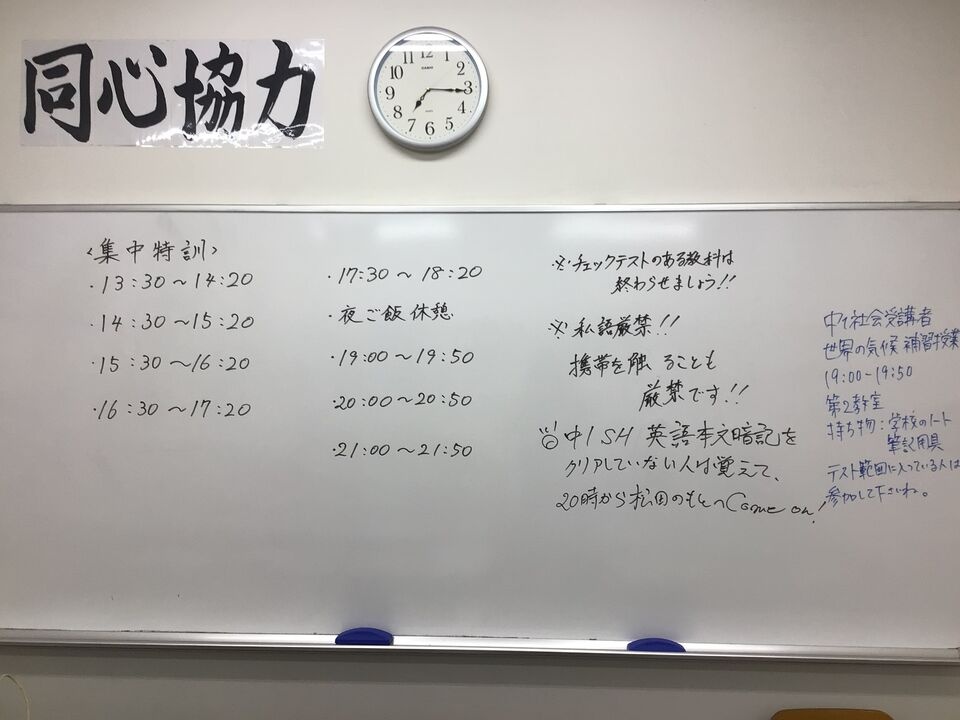 同心協力
CASIO
12
1
2
3
4
5
6
7
8
9
10
11
<集中特訓>
・13:30〜14:20
・14:30〜15:20
・15:30〜16:20
・16:30〜17:20
・17:30〜18:20
・夜ご飯休憩
・19:00〜19:50
・20:00〜20:50
・21:00〜21:50
※チェックテストのある教科は
終わらせましょう!!
※私語厳禁!!
携帯を触ることも
厳禁です!!
中1SH 英語本文暗記を
クリアしていない人は覚えて、
20時から松田のもとへCome on!
中1社会受講者
世界の気候 補習授業
19:00~19:50
第2教室
持ち物:学校のノート
筆記用具
テスト範囲に入っている人は
参加して下さいね。